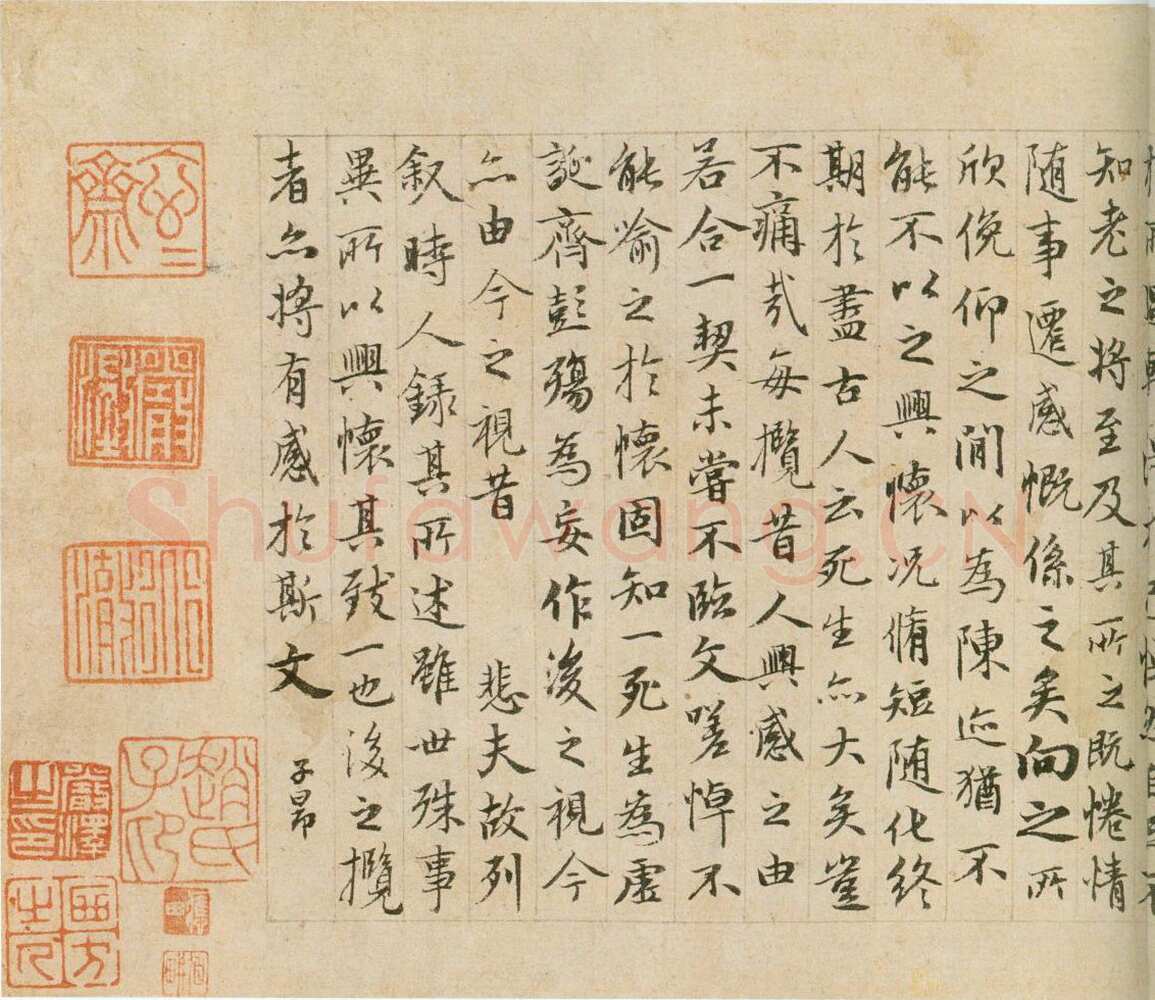 知老之将至及其所之既惓情
随事遷感慨係之矣向之所
欣俛仰之間以為陳迹猶不
能不以之興懷况脩短随化終
期於盡古人云死生亦大矣豈
不痛哉每攬昔人興感之由
若合一契未嘗不臨文嗟悼不
能喻之於懷固知一死生為虛
誕齊彭殤為妄作後之視今
亦由今之視昔 悲夫故列
叙時人錄其所述雖世殊事
異所以興懷其致一也後之攬
者亦將有感於斯文
子昂
趙氏子印
嚴澤之印
Shufawang.CN